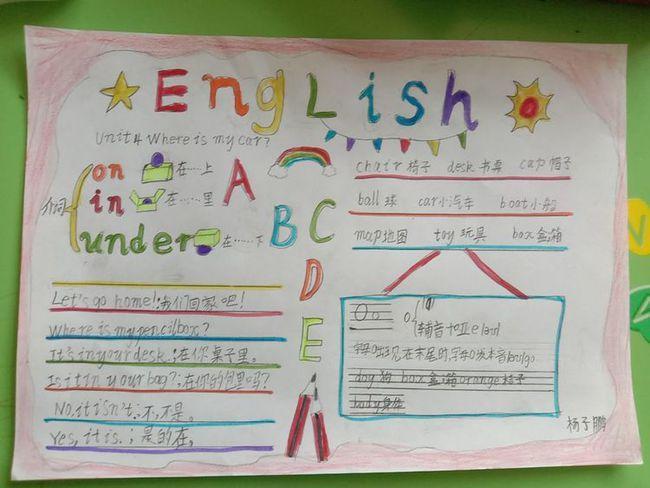 English
Unit4 Where is my car?
介词
on 在……上
in 在……里
under 在……下
A
B
C
D
E
chair 椅子 desk 书桌 cap 帽子
ball 球 car 小汽车 boat 小船
map 地图 toy 玩具 box 盒;箱
Let's go home!;我们回家吧!
Where is my pencilbox?
It's in your desk.;在你桌子里。
Is it in your bag?;在你的包里吗?
No, it isn't.;不,不是。
Yes, it is.;是的在。
Oo
dog 狗 box 盒;箱 orange 桔子
body 身体
杨子鹏